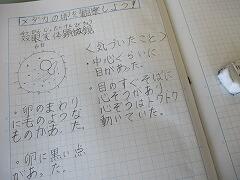 メダカの卵を観察しよう!
双眼実体顕微鏡
<気づいたこと>
・中心ぐらいに
目があった。
・目のすぐそばに
心ぞうがあり、
心ぞうはドクドク
動いていた。
・卵のまわり
に毛のような
ものがあった。
・卵に黒い点
があった。